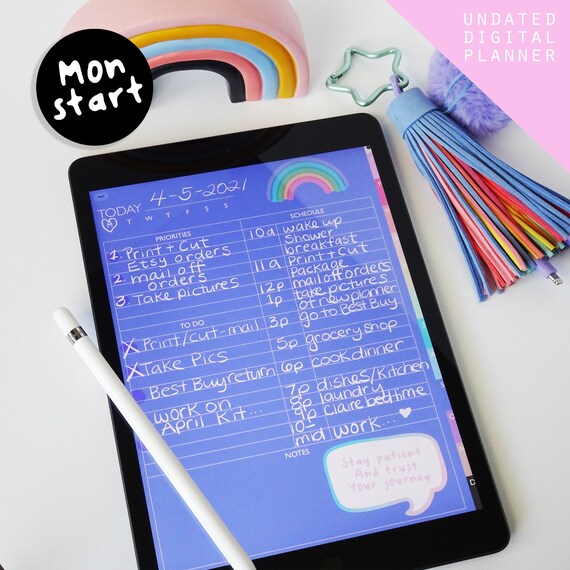 Mon
start
UNDATED
DIGITAL
PLANNER
TODAY 4-5-2021
M T W T F S S
PRIORITIES
1. Print + Cut
Etsy orders
2. mail off
orders
3. Take pictures
TO DO
X Print/cut-mail
X Take Pics
Best Buy return
work on
April Kit...
SCHEDULE
10a wake up
Shower
breakfast
11a Print + Cut
Package
12p mail off orders
1p take pictures
of new planner
3p go to Best Buy
5p grocery shop
6p cook dinner
7p dishes/Kitchen
8p laundry
9p Claire bedtime
10-
mid work...
NOTES
Stay patient
And trust
Your journey
D